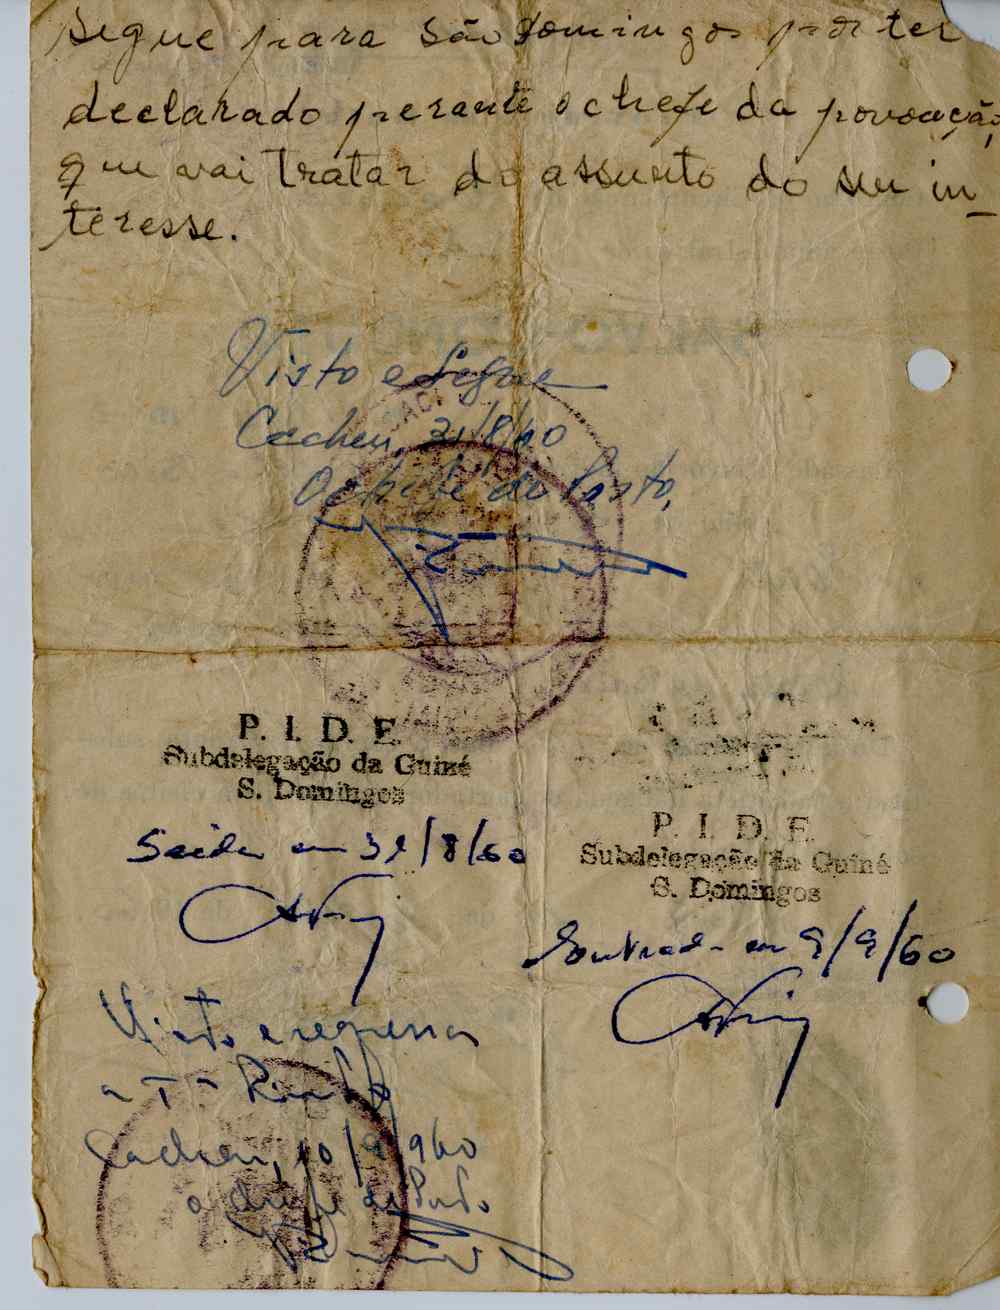 Segue para São Domingos por ter
declarado perante o chefe da povoação,
que vai tratar do assunto do seu in_
teresse.
Visto e Segue
Cacheu, 31/8/60
O chefe do Posto,
P. I. D. E.
Subdelegação da Guiné
S. Domingos
Saida em 31/8/60
P. I. D. E.
Subdelegação da Guiné
S. Domingos
Entrada em 9/9/60
Visto e regressa
a
Cacheu, 10/9/960
o chefe de Posto